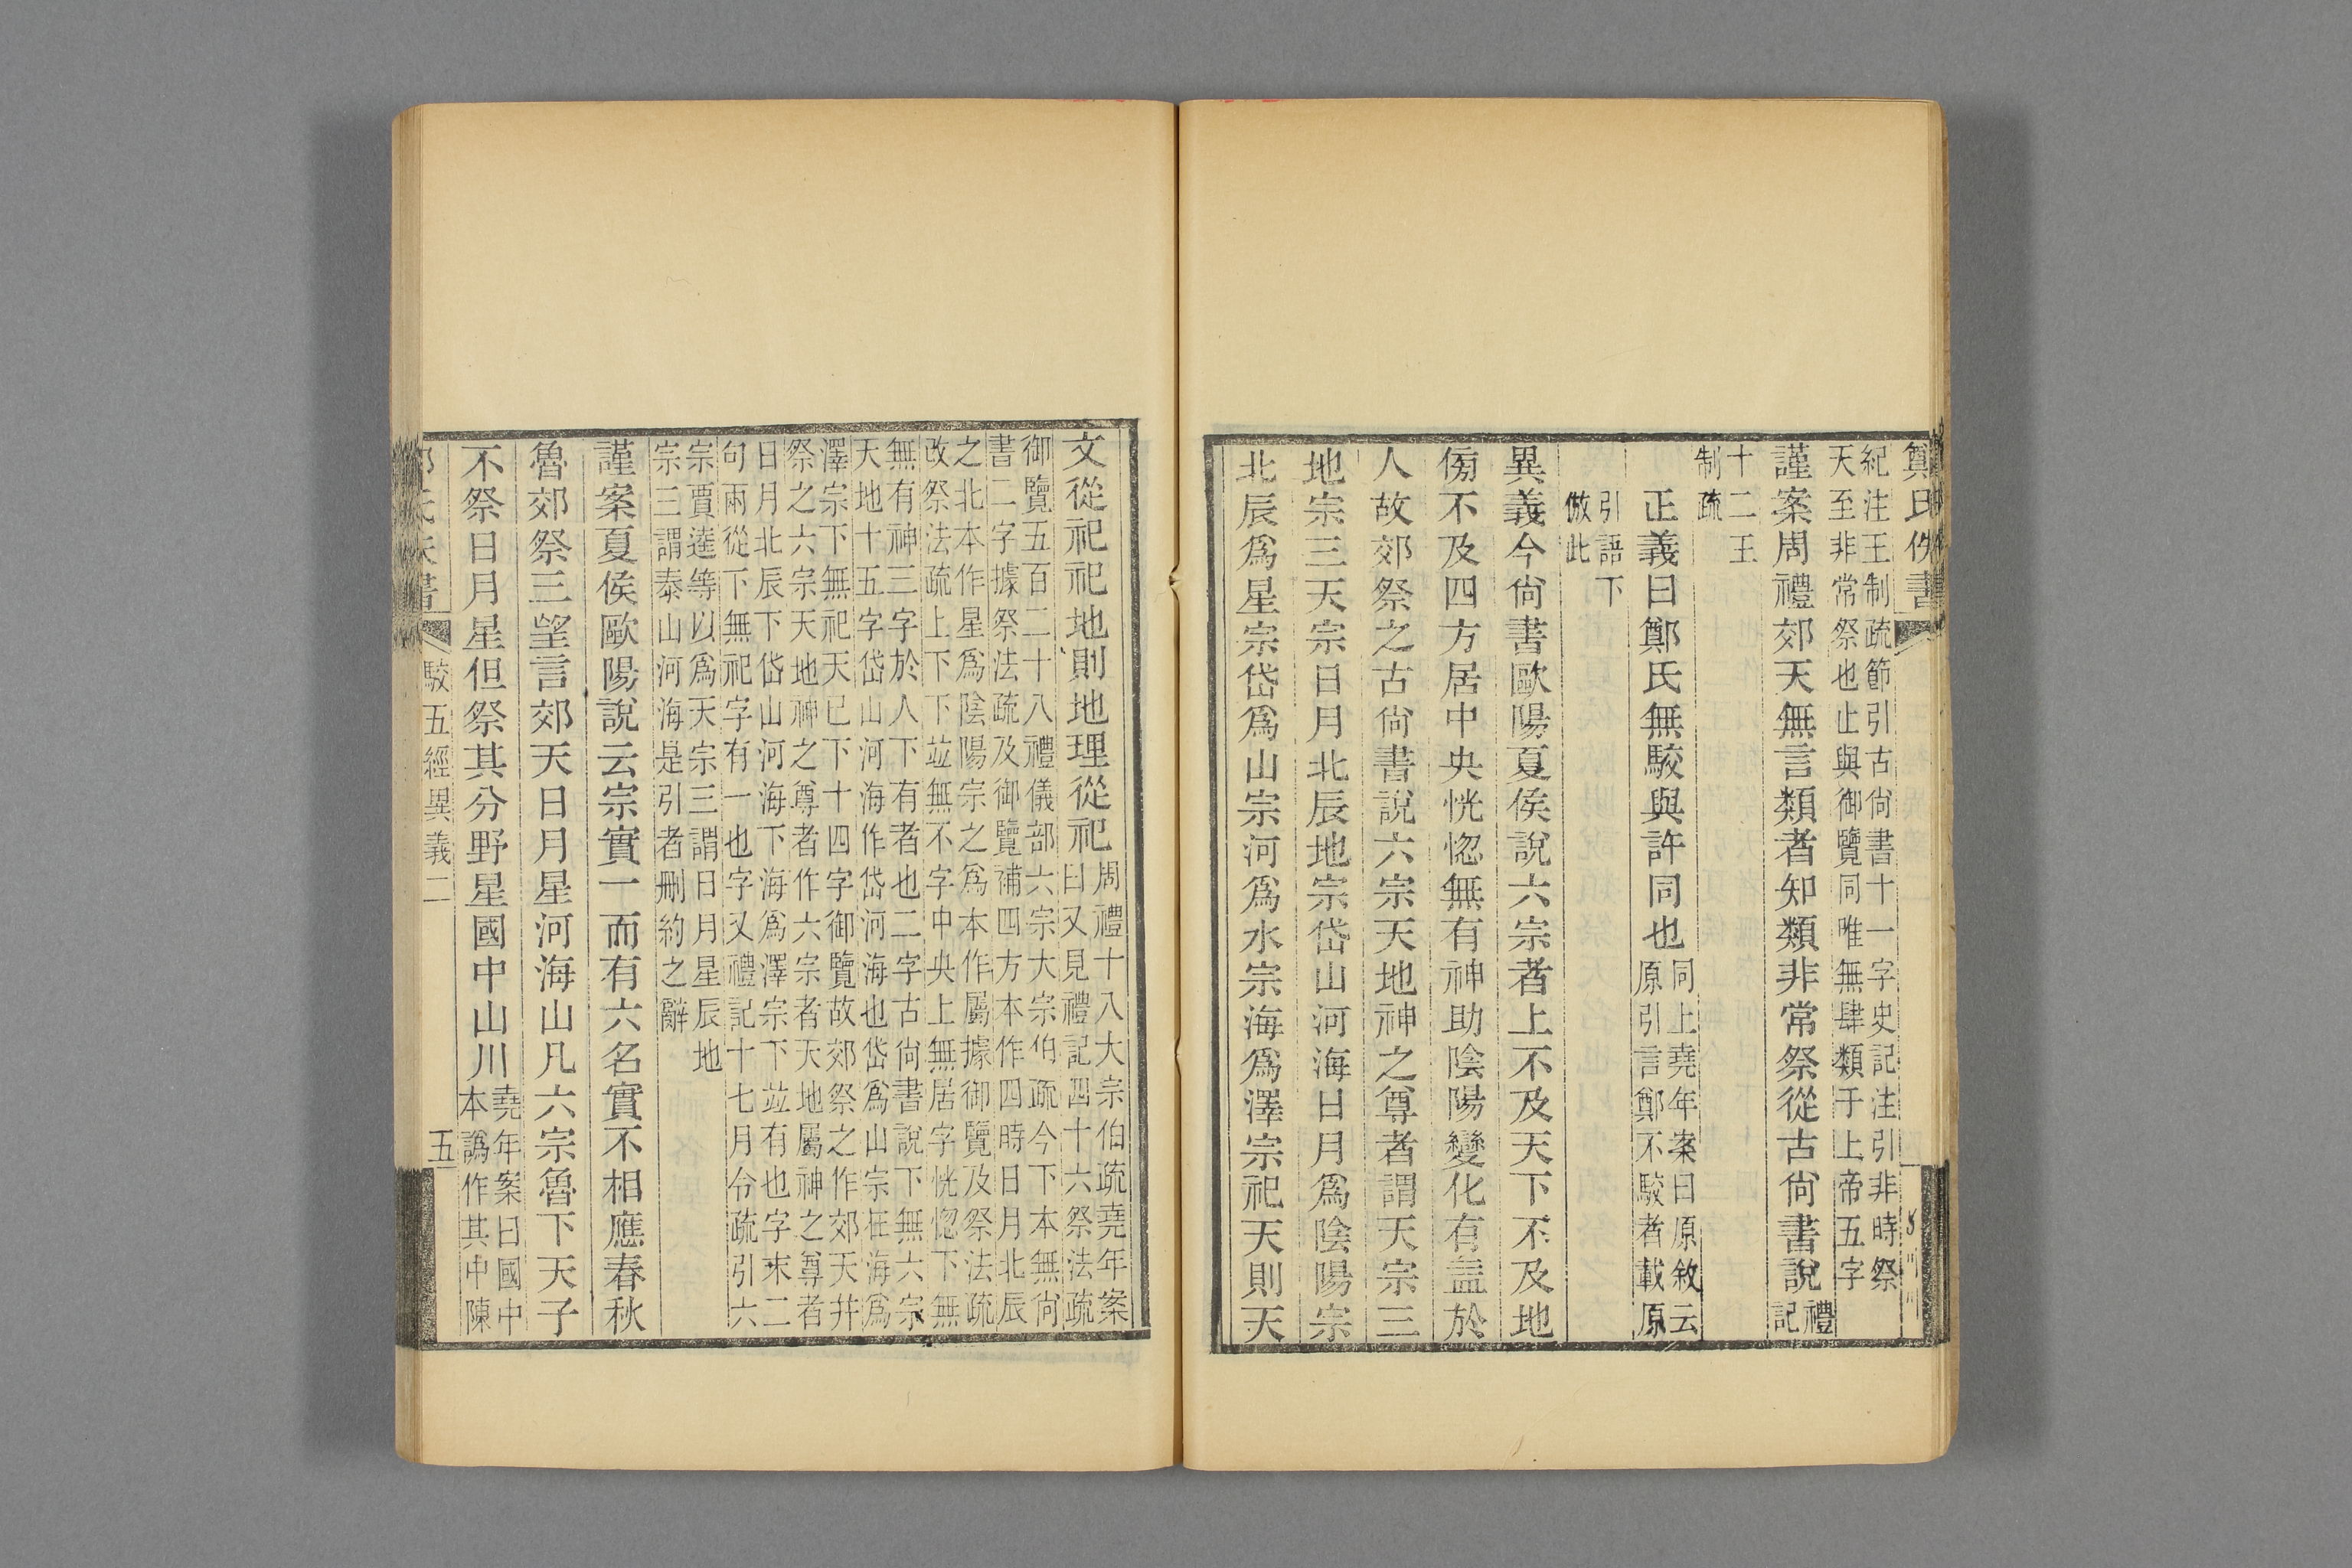 鄭氏佚書
紀注王制疏節引古尙書十一字史記注引非時祭
天至非常祭也止與御覽同唯無肆類于上帝五字
謹案周禮郊天無言類者知類非常祭從古尙書說禮
記
十二王
制疏
正義曰鄭氏無駮與許同也同上堯年案曰原敘云
原引言鄭不駮者載原
引語下
倣此
異義今尙書歐陽夏侯說六宗者上不及天下不及地
傍不及四方居中央恍惚無有神助陰陽變化有益於
人故郊祭之古尙書說六宗天地神之尊者謂天宗三
地宗三天宗日月北辰地宗岱山河海日月爲陰陽宗
北辰爲星宗岱爲山宗河爲水宗海爲澤宗祀天則天
文從祀祀地則地理從祀周禮十八大宗伯疏堯年案
曰又見禮記四十六祭法疏
御覽五百二十八禮儀部六宗大宗伯疏今下本無尙
書二字據祭法疏及御覽補四方本作四時日月北辰
之北本作星爲陰陽宗之爲本作屬據御覽及祭法疏
改祭法疏上下下竝無不字中央上無居字恍惚下無
無有神三字於人下有者也二字古尙書說下無六宗
天地十五字岱山河海作岱河海也岱爲山宗在海爲
澤宗下無祀天已下十四字御覽故郊祭之作郊天幷
祭之六宗天地神之尊者作六宗者天地屬神之尊者
日月北辰下岱山河海下海爲澤宗下竝有也字末二
句兩從下無祀字有一也字又禮記十七月令疏引六
宗賈逵等以爲天宗三謂日月星辰地
宗三謂泰山河海是引者刪約之辭
謹案夏侯歐陽說云宗實一而有六名實不相應春秋
魯郊祭三望言郊天日月星河海山凡六宗魯下天子
不祭日月星但祭其分野星國中山川堯年案曰國中
本譌作其中陳
駮五經異義二
五